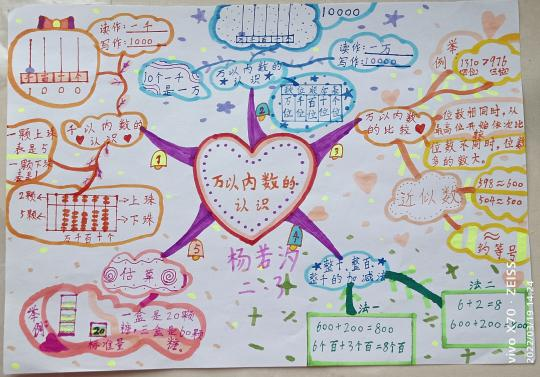 读作:一千
写作:1000
1 0 0 0
千以内数的
认识
1
一颗上珠
表是5
一颗下珠
表是1
2颗
5颗
上珠
下珠
万千百十个
10000
读作:一万
写作:10000
10个一千
是一万
万以内数的
认识
2
数位顺序表
万千百十个
位位位位位
举例
1310>976
万以内数的
比较
3
位数相同时,从
最高位开始依次比
位数不同时,位数
多的数大。
近似数
598≈600
504≈500
≈
约等号
万以内数的
认识
4
整千、整百、
整千的加减法
法一
600+200=800
6个百+2个百=8个百
法二
6+2=8
5
估算
举例:
20
标准量
一盒是20颗
糖,三盒是60颗
糖。
杨若汐
二.3
vivo X70 · ZEISS
2022/07/19 14:24